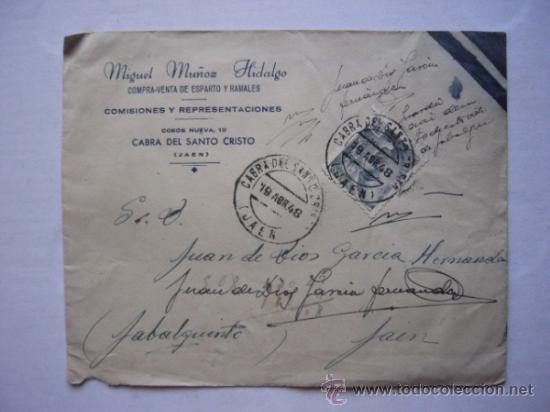 Miguel Muñoz Hidalgo
COMPRA-VENTA DE ESPARTO Y RAMALES
COMISIONES Y REPRESENTACIONES
COSOS NUEVA, 10
CABRA DEL SANTO CRISTO
(JAEN)
Juan de Dios Garcia
Fernandez
CABRA DEL SANTO
19 ABR. 48
(JAEN)
CABRA DEL SANTO CRISTO
19 ABR. 48
(JAEN)
Sr. D.
Juan de Dios Garcia Hernandez
Juan de Dios Garcia Fernandez
(Jabalquinto) Jaén
www.todocoleccion.net